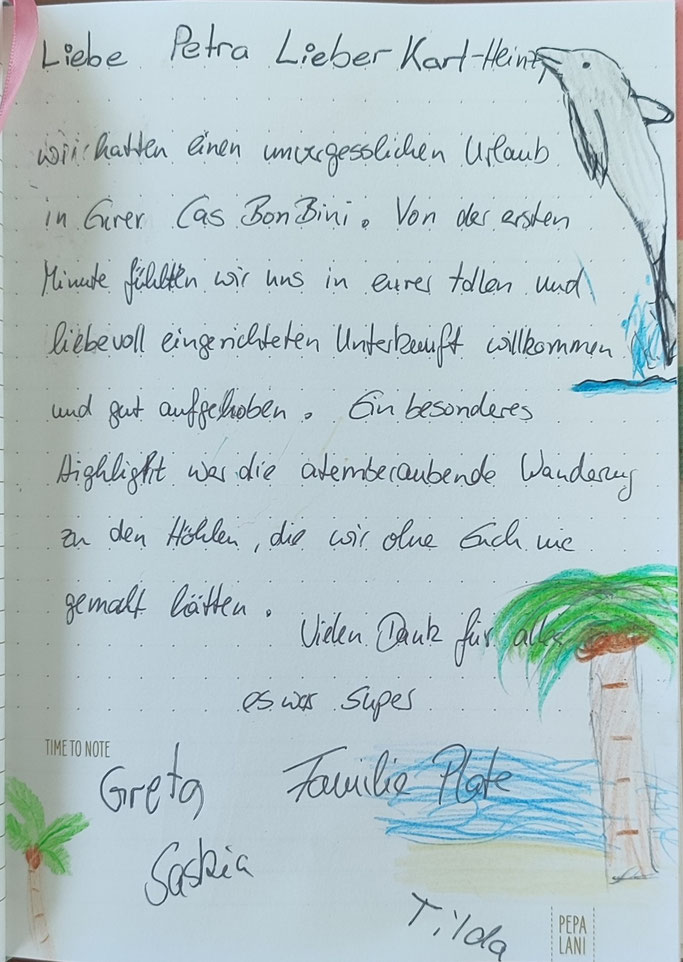 Liebe Petra Lieber Karl-Heinz,
wir hatten einen unvergesslichen Urlaub
in Eurer Cas BonBini. Von der ersten
Minute fühlten wir uns in eurer tollen und
liebevoll eingerichteten Unterkunft willkommen
und gut aufgehoben. Ein besonderes
Highlight war die atemberaubende Wanderung
zu den Höhlen, die wir ohne Euch nie
gemacht hätten.
Vielen Dank für alles
es war super
TIME TO NOTE
Greta Familie Plate
Saskia
Tilda
PEPA
LANI